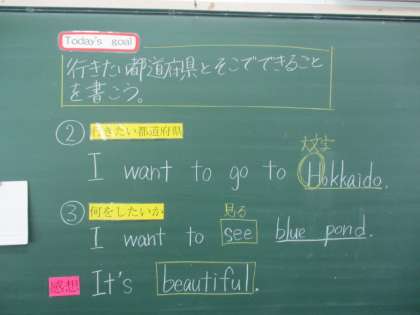 Today's goal
行きたい都道府県とそこでできること
を書こう。
② 行きたい都道府県
大文字
I want to go to Hokkaido.
③ 何をしたいか
見る
I want to see blue pond.
感想 It's beautiful.